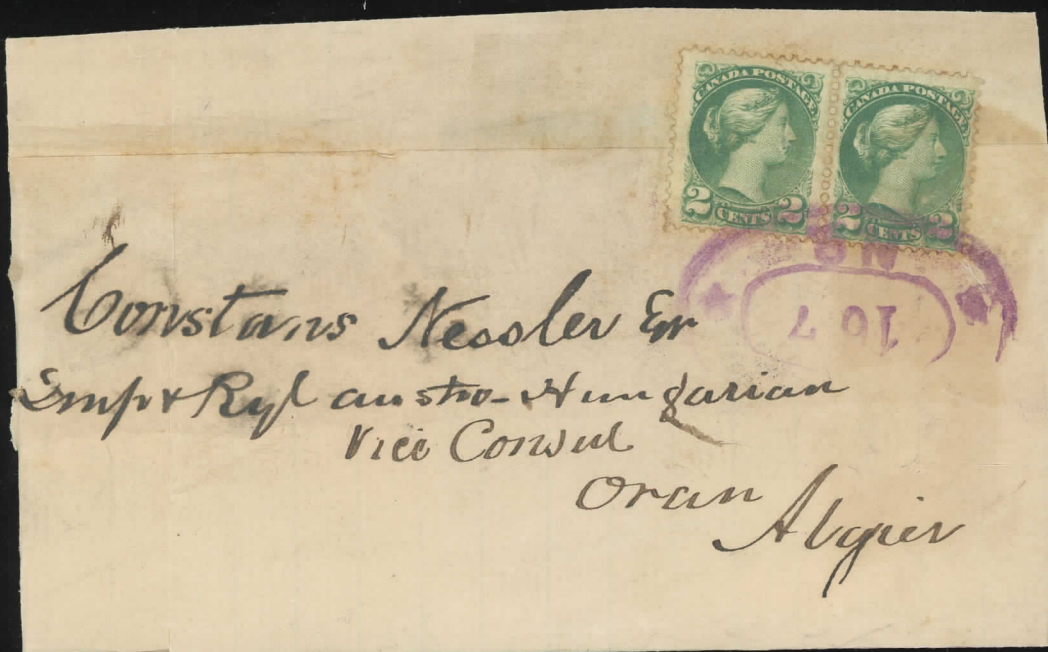 CANADA POSTAGE CANADA POSTAGE
2 CENTS 2 2 CENTS 2
16 7
Constans Nessler Esr
Imp & Ryl austro-Hungarian
Vice Consul
Oran
Algier